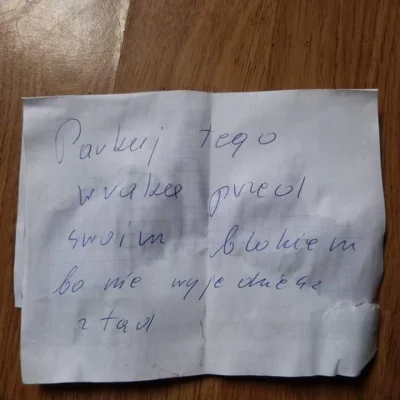 Parkuj tego
wraka przed
swoim blokiem
bo nie wyjedziesz
z tąd